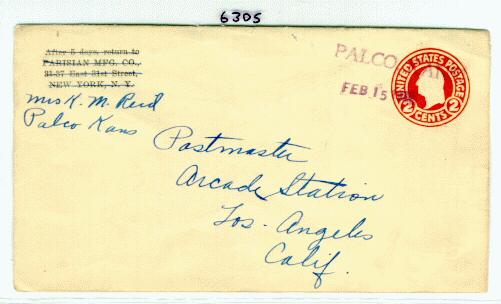 6305
After 5 days, return to
PARISIAN MFG. CO.,
31-37 East 31st Street,
NEW YORK, N. Y.
Mrs K. M. Reid
Palco Kans
PALCO
FEB 15
UNITED STATES POSTAGE
2 CENTS 2
Postmaster
Arcade Station
Los-Angeles
Calif.